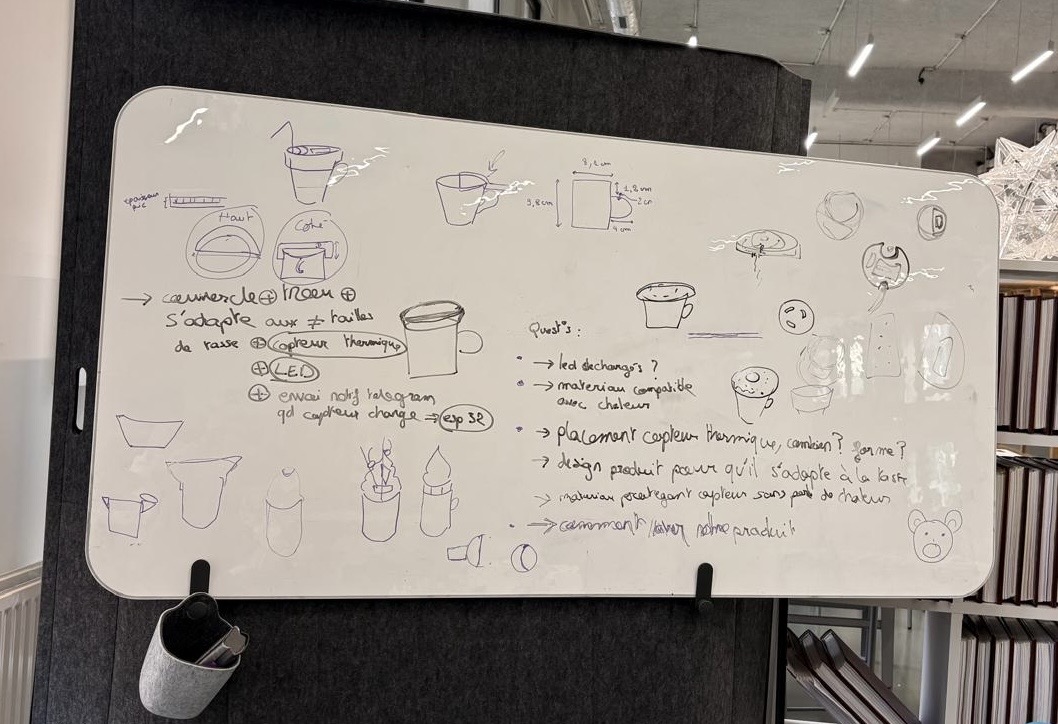 8,2 cm
1,8 cm
2 cm
9,8 cm
4 cm
épaisseur
Haut
Coté
→ couvercle ⊕ trou ⊕
s'adapte aux ≠ tailles
de tasse ⊕ capteur thermique
⊕ LED
⊕ envoi notif telegram
qd capteur change ⇒ esp 32
Quest°s :
→ led dechanges ?
→ materiau compatible
avec chaleur
→ placement capteur thermique, combien ? forme ?
→ design produit pour qu'il s'adapte à la tasse
→ materiau protegeant capteur sans perte de chaleur
→ comment laver notre produit